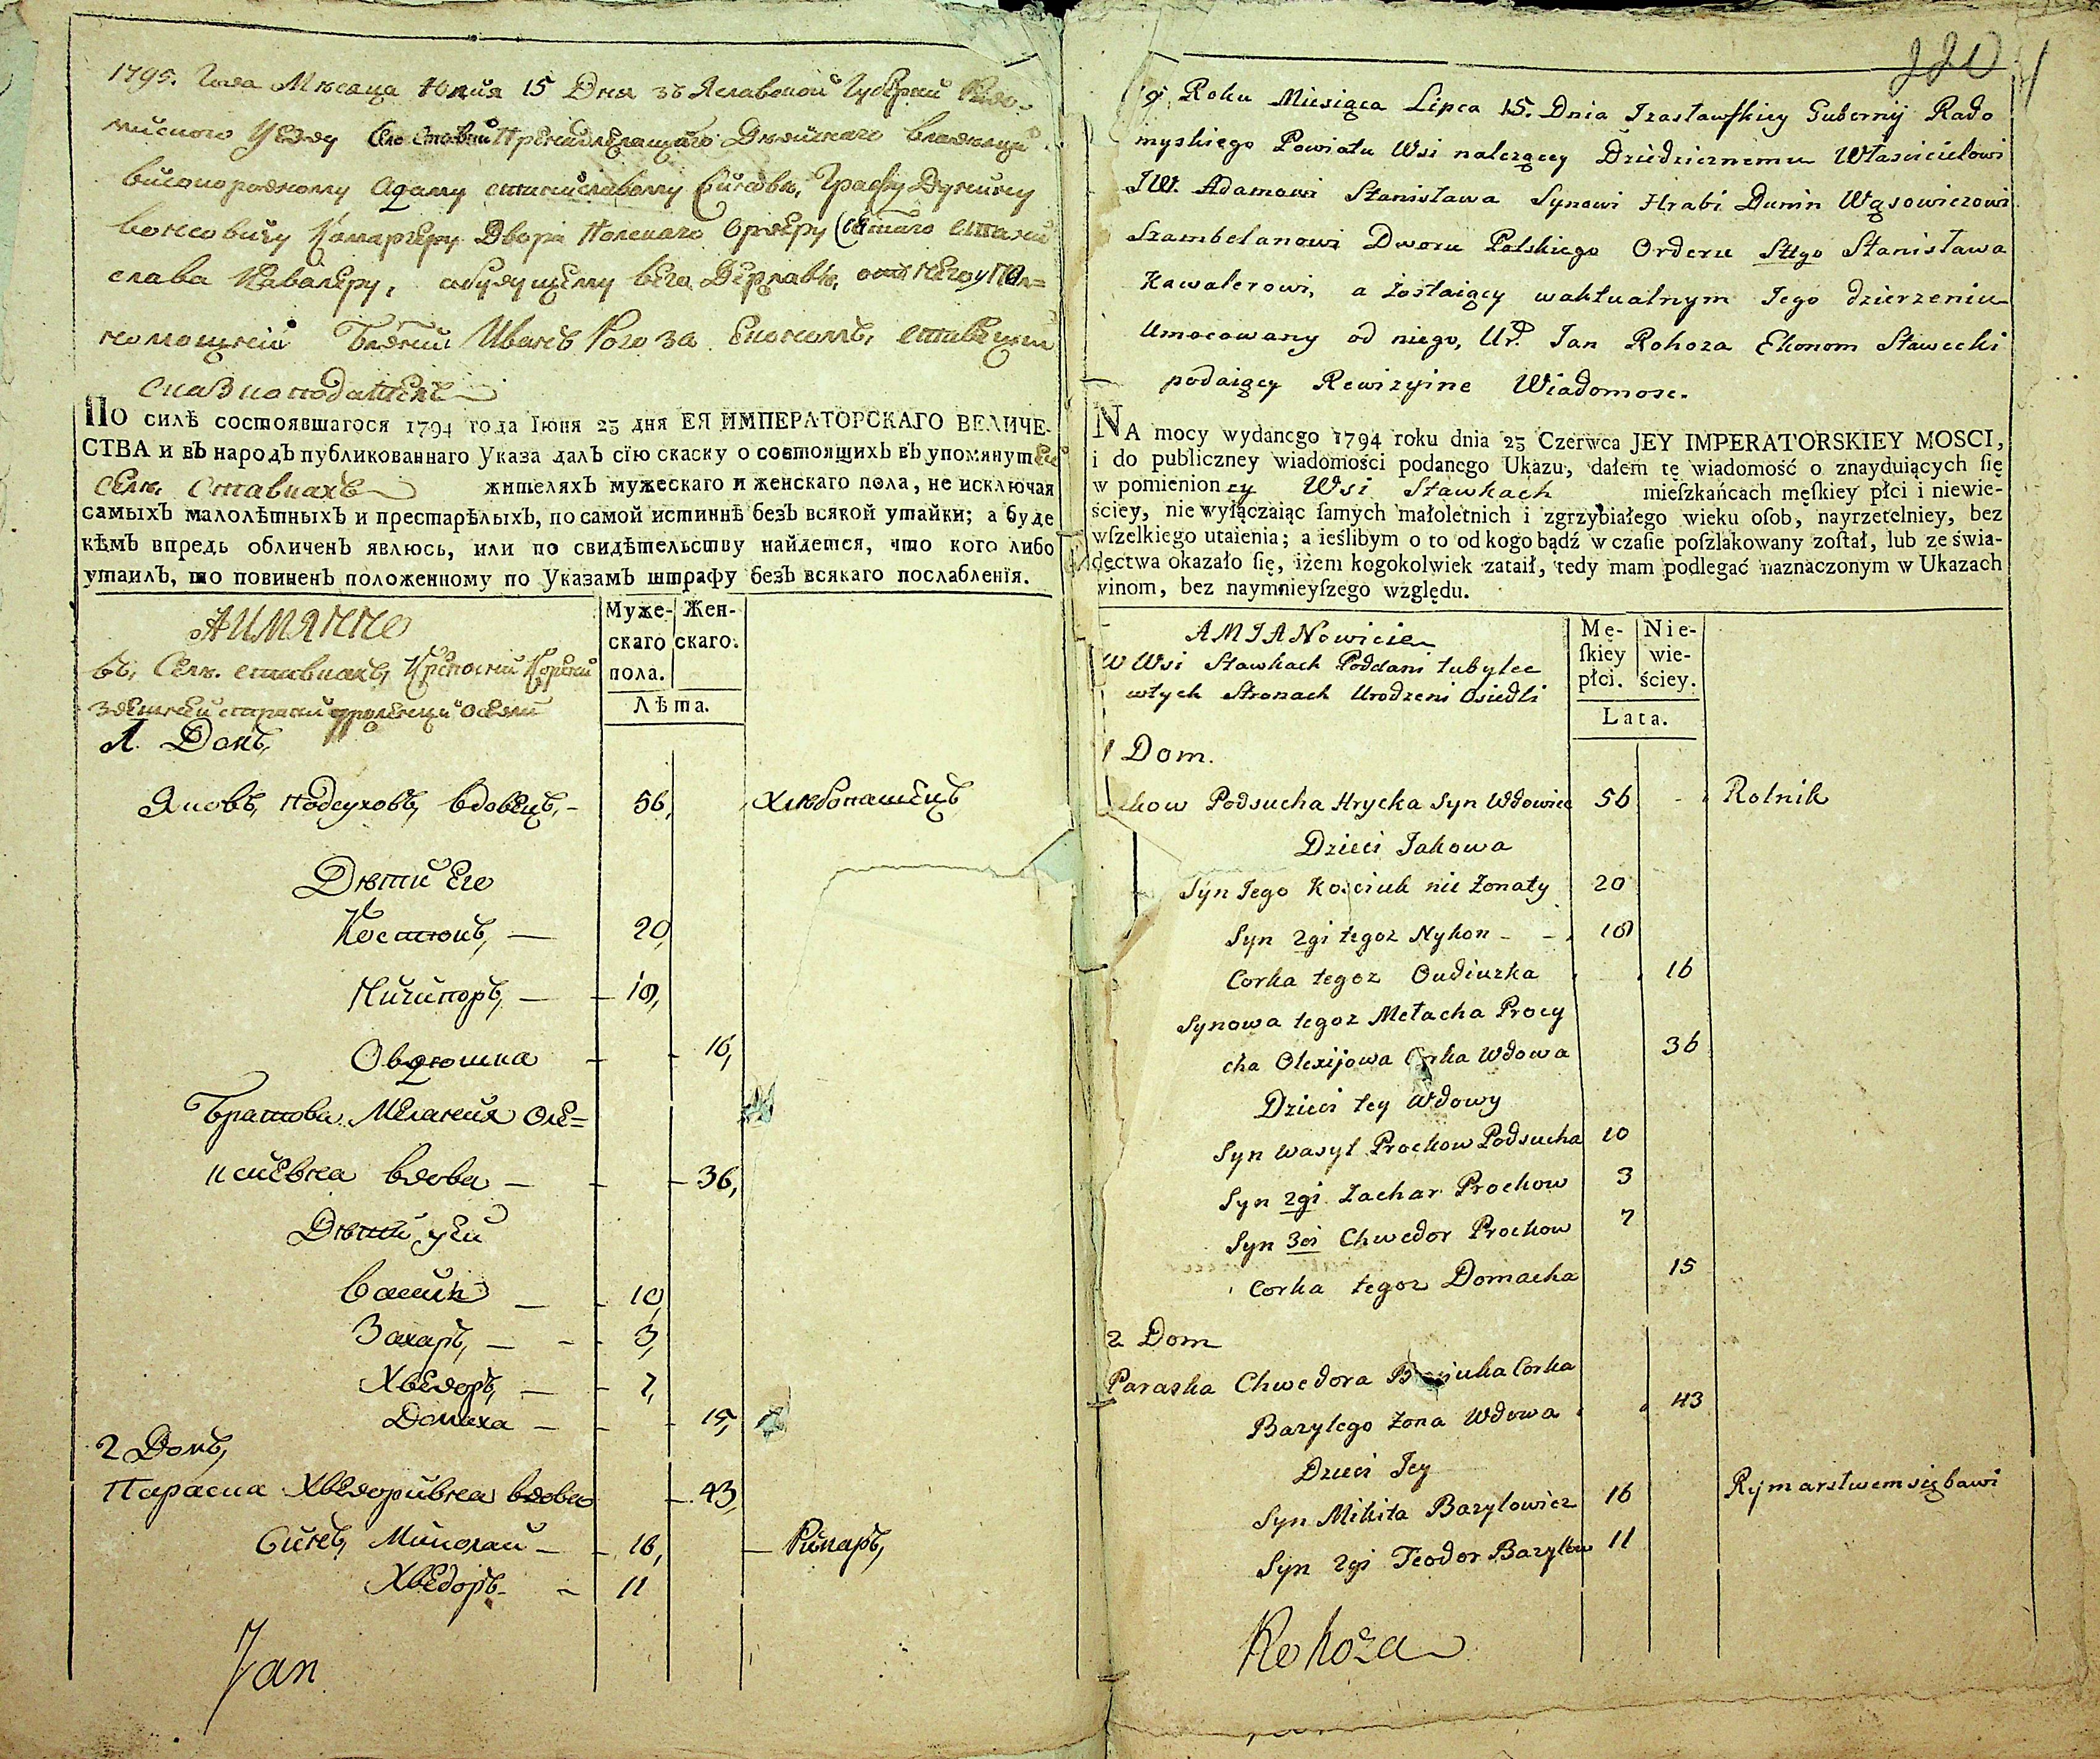 1795. Года Мѣсаца Юлия 15 Дня зъ Яславской Губерний Радо-
миского Уезду
високородному Адаму станиславому Синовѣ, Графу Дунину
Вонсовичу Двора Полскаго Ордеру Святаго стани
слава Кавалеру,
Иванъ Рогоза Економъ,
По силѣ состоявшагося 1794 года Іюня 23 дня ЕЯ ИМПЕРАТОРСКАГО ВЕЛИЧЕ-
СТВА и въ народъ публикованнаго Указа далъ сїю скаску о состоящихъ въ упомянутом
Селѣ Ставкахъ жителяхъ мужескаго и женскаго пола, не исключая
самыхъ малолѣтныхъ и престарѣлыхъ, по самой истиннѣ безъ всякой утайки; а буде
кѣмъ впредь обличенъ явлюсь, или по свидѣтельству найдется, что кого либо
утаилъ, то повиненъ положенному по Указамъ штрафу безъ всякаго послабленїя.
АИМЯННО
въ Селѣ ставкахъ,
Муже-
скаго
пола.
Жен-
скаго.
Лѣта.
1. Домъ,
Яковъ, Подсуховъ, вдовецъ, - 56, Хлѣбопашецъ
Дѣти Его
Костюкъ, — 20,
Ничипоръ, — 18,
Овдюшка — 16,
Братова Мелания Оле=
ксиевна вдова — 36,
Дѣти уей
Василь — 10,
Захаръ, — 3,
Хведоръ, — 7,
Домаха — 15,
2 Домъ,
Параска Хведоривна вдова 43,
Синъ, Миколаи — 16, — Римаръ,
Хведоръ - 11
Jan
Roku Miesiąca Lipca 15. Dnia Izasławſkiey Gubernij Rado
myskiego Powiatu Wsi nalezącey Dziedzicznemu Właścicielowi
JW. Adamowi Stanisława Synowi Hrabi Dunin Wąsowiczowi
Szambelanowi Dworu Polskiego Orderu Sttgo Stanisława
Kawalerowi, a zostaiący waktualnym Jego dzierzeniu
Umocowany od niego, Ur. Jan Rohoza Ekonom Stawecki
podaiący Rewizyine Wiadomosc.
NA mocy wydanego 1794 roku dnia 23 Czerwca JEY IMPERATORSKIEY MOSCI,
i do publiczney wiadomości podanego Ukazu, dałem tę wiadomość o znayduiących ſię
w pomienioney Wsi Stawkach mieſzkańcach męſkiey płci i niewie-
ściey, nie wyłączaiąc ſamych małoletnich i zgrzybiałego wieku oſob, nayrzetelniey, bez
wſzelkiego utaienia; a ieślibym o to od kogo bądź w czaſie poſzlakowany zoſtał, lub ze świa-
dectwa okazało ſię, iżem kogokolwiek zataił, tedy mam podlegać naznaczonym w Ukazach
winom, bez naymnieyſzego względu.
AMIANowicie
W Wsi Stawkach Poddani tubylce
wtych Stronach Urodzeni Osiedli
Mę-
ſkiey
płci.
Nie-
wie-
ściey.
Lata.
1 Dom.
Podsucha Hrycka Syn Wdowiec 56 Rolnik
Dzieci Jakowa
Syn Jego Kosciuk nie Zonaty 20
Syn 2gi tegoz Nykon - - 18
Corka tegoz Oudiuzka 16
Synowa tegoz Metacha Procy
cha Olexijowa Corka Wdowa 36
Dzieci tey Wdowy
Syn Wasyl Prochow Podsucha 10
Syn 2gi Zachar Prochow 3
Syn 3ci Chwedor Prochow 7
Corka tegoz Domacha 15
2 Dom
Paraska Chwedora Corka
Bazylego Zona Wdowa 43
Dzieci Jey
Syn Mikita Bazylowicz 16 Rymarstwem się bawi
Syn 2gi Teodor Bazylow 11
Rohoza